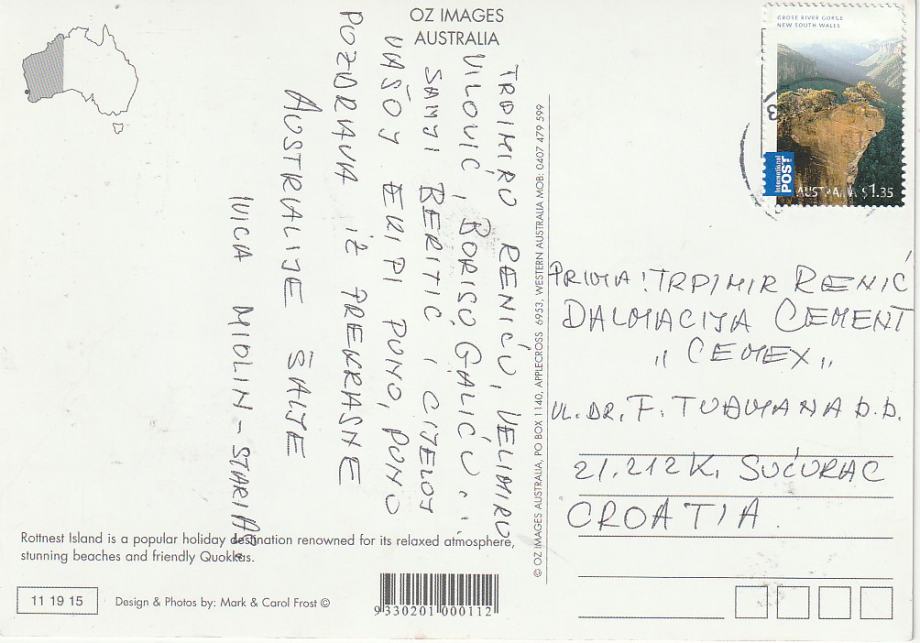 OZ IMAGES
AUSTRALIA
TRPIMIRU RENIĆU, VELIMIRU
VILOVIĆ, BORISU GALIĆU,
SANJI BERITIC I CITELOJ
VAŠOJ EKIPI PUNO, PUNO
POZDRAVA IZ PREKRASNE
AUSTRALIJE ŠALJE
IVICA MIOLIN-STARIJA
Rottnest Island is a popular holiday destination renowned for its relaxed atmosphere,
stunning beaches and friendly Quokkas.
11 19 15
Design & Photos by: Mark & Carol Frost ©
9 330201 000112
© OZ IMAGES AUSTRALIA, PO BOX 1140, APPLECROSS 6953, WESTERN AUSTRALIA MOB: 0407 479 599
GROSE RIVER GORGE
NEW SOUTH WALES
International
POST
AUSTRALIA $1.35
PRIMA: TRPIMIR RENIĆ
DALMACIJA CEMENT
„ CEMEX „
UL. DR. F. TUĐMANA B.B.
21.212 K. SUĆURAC
CROATIA.